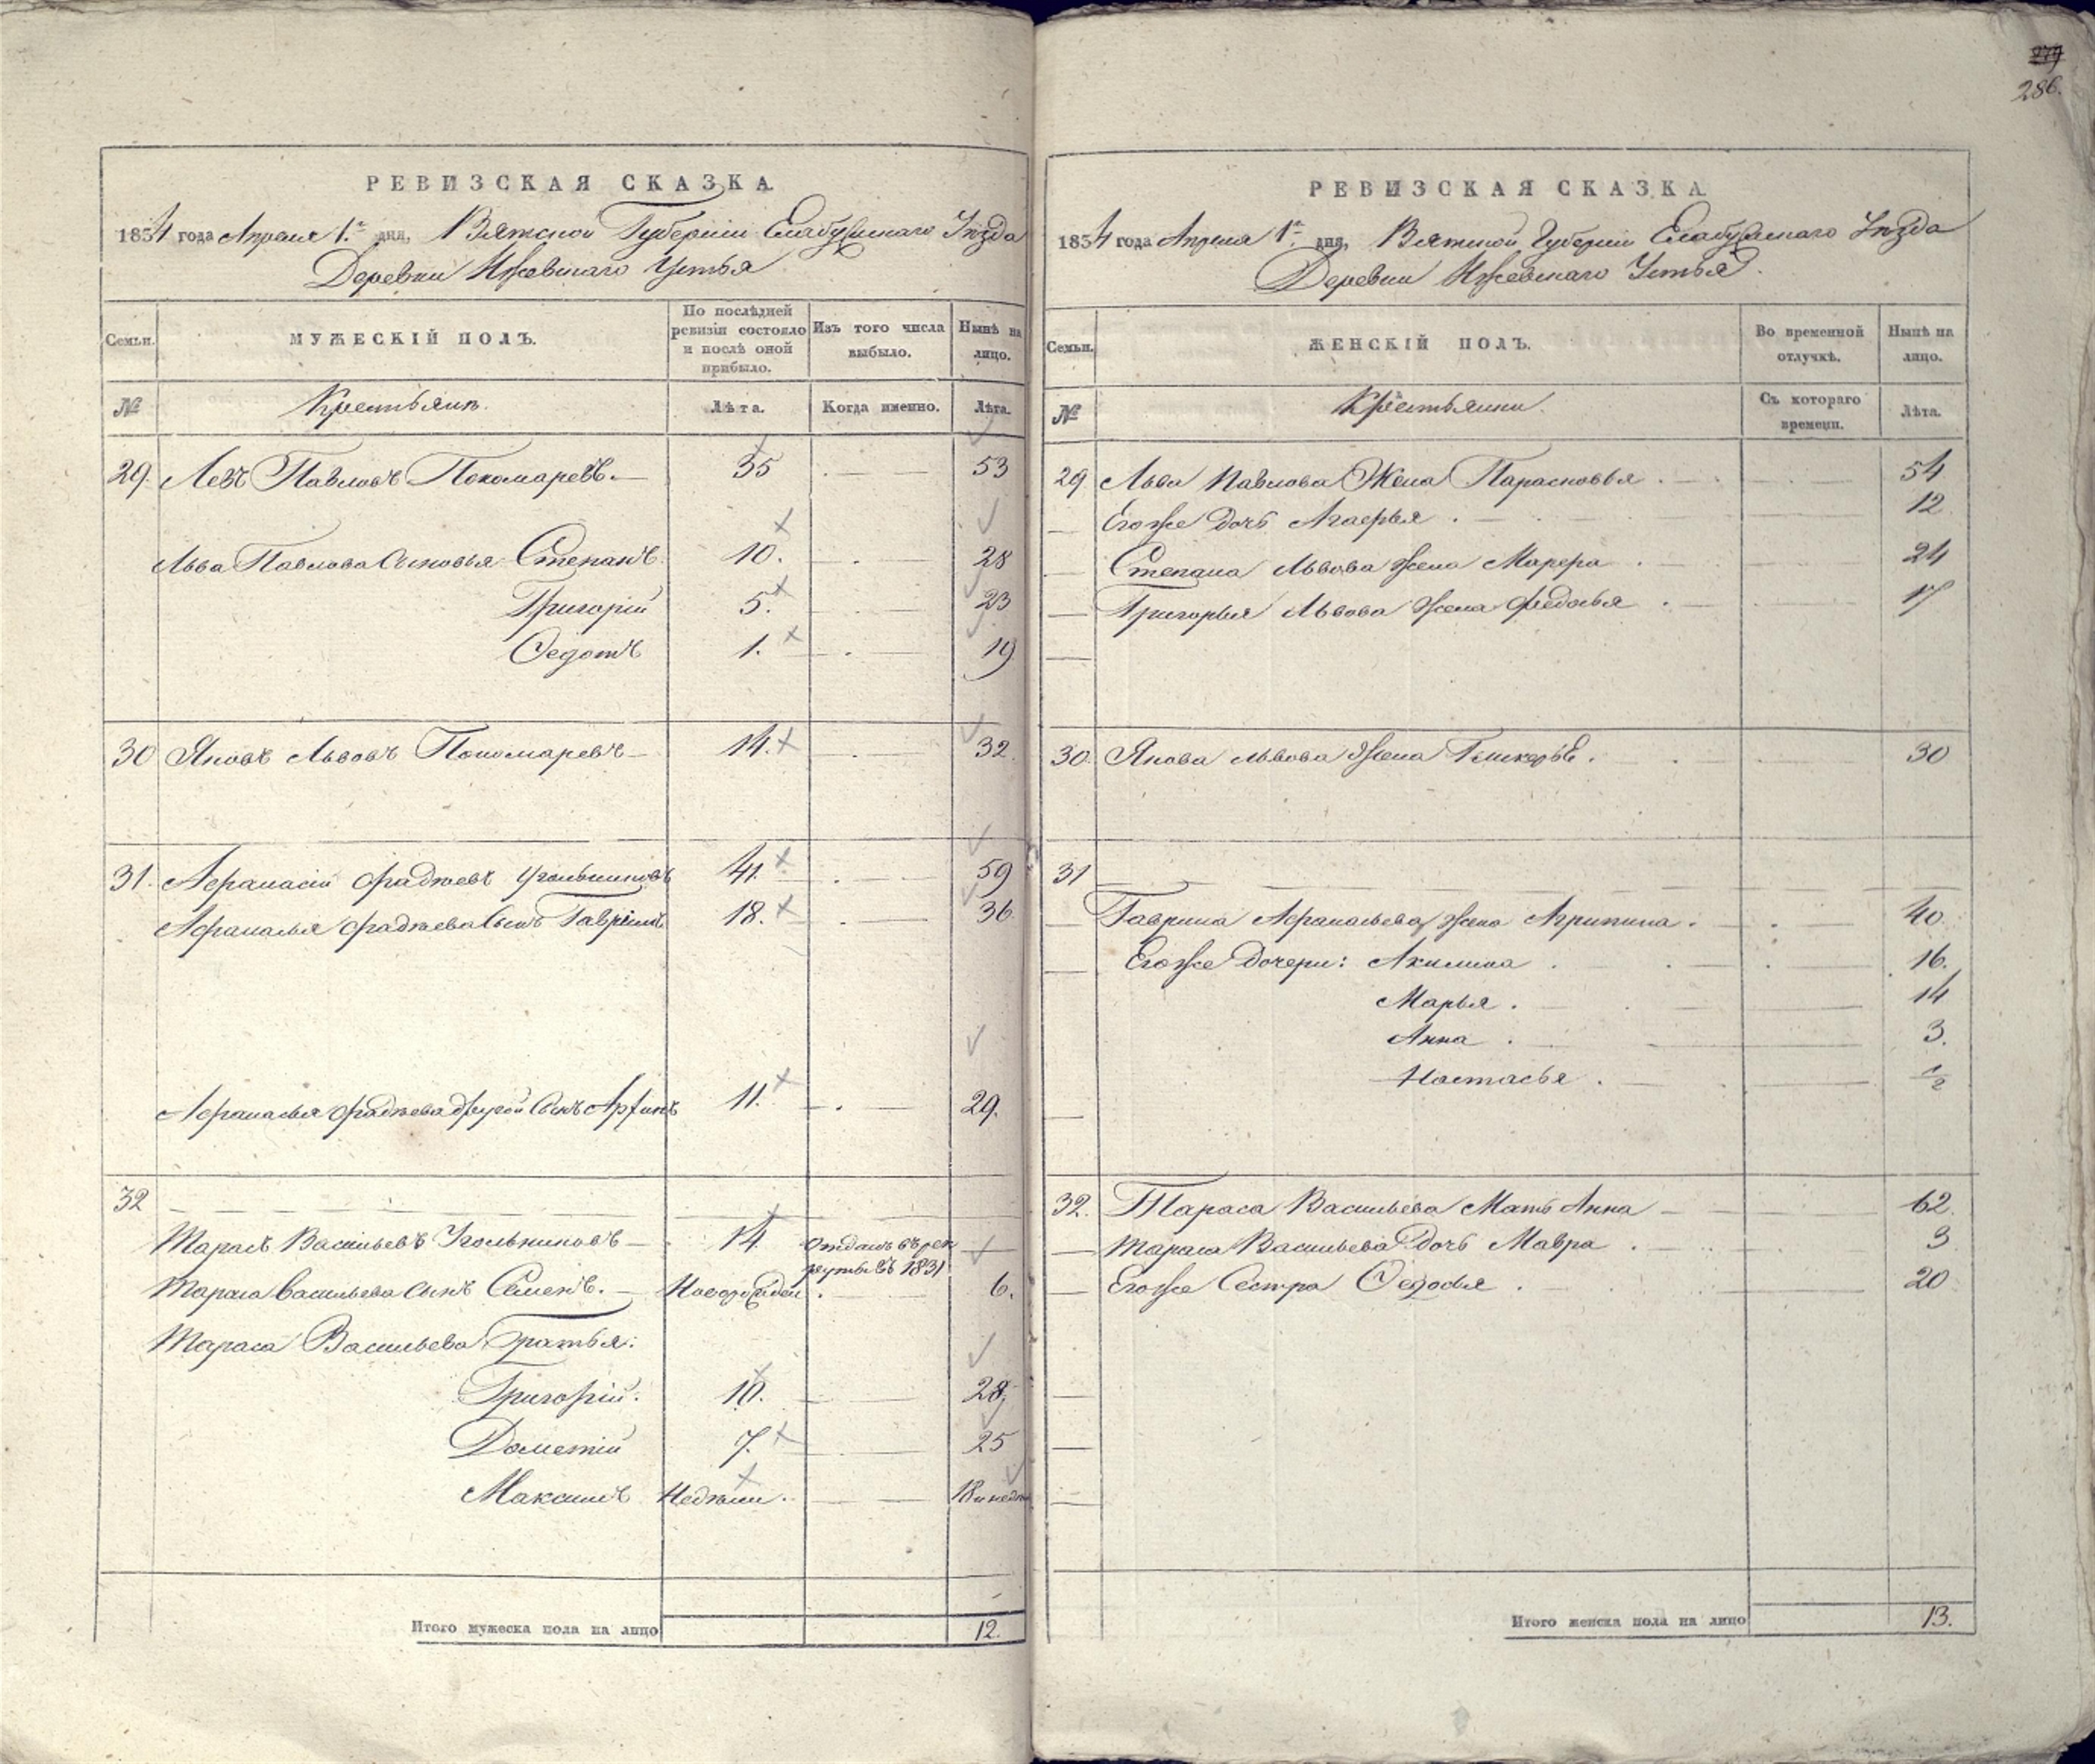 279
286.
РЕВИЗСКАЯ СКАЗКА
1834 года Апреля 1го дня, Вятской Губернiи Елабужскаго Уѣзда
Деревни Ижевскаго Устья
Семьи.
МУЖЕСКIЙ ПОЛЪ.
По послѣдней
ревизiи состояло
и послѣ оной
прибыло.
Изъ того числа
выбыло.
Нынѣ на
лицо.
№
Крестьяне.
Лѣта.
Когда именно.
Лѣта.
29. Левъ Павловъ Пономаревъ. 35 53
Льва Павлова Сыновья Степанъ 10. 28
Григорiй 5. 23
Федотъ 1. 19
30 Яковъ Львовъ Пономаревъ 14. 32.
31. Афанасiй Фадѣевъ Угольниковъ 41. 59
Афанасья Фадѣева Сынъ Гаврiилъ 18. 36
Афанасья Фадѣева другой Сынъ 11. 29.
32
Тарасъ Васильевъ Угольниковъ 14 отданъ въ рек
руты въ 1831
Тараса Васильева сынъ Семенъ. Новорожден 6.
Тараса Васильева Братья:
Григорiй. 10. 28
Дометiй 7. 25
Максимъ Недѣли. 18 и недѣл
Итого мужеска пола на лицо 12.
РЕВИЗСКАЯ СКАЗКА
1834 года Апреля 1го дня, Вятской Губернiи Елабужскаго Уѣзда
Деревни Ижевскаго Устья.
Семьи.
ЖЕНСКIЙ ПОЛЪ.
Во временной
отлучкѣ.
Нынѣ на
лицо.
№
Крестьянки.
Съ котораго
времени.
Лѣта.
29 Льва Павлова Жена Парасковья. 54
Егоже Дочь Агафья. 12
Степана Львова жена Марфа. 24
Григорья Львова жена Федосья. 17
30. Якова Львова Жена 30
31
Гаврила Афанасьева жена Агрипина. 40.
Егоже Дочери: Акилина. 16.
Марья. 14
Анна. 3.
Настасья. 1/2
32. Тараса Васильева Мать Анна 62.
Тараса Васильева Дочь Мавра. 3
Егоже Сестра Федосья. 20
Итого женска пола на лицо 13.